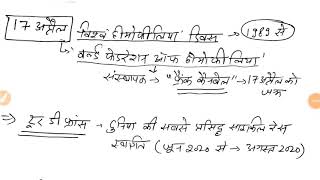 17 अप्रैल
विश्व हीमोफीलिया दिवस → 1989 से
"वर्ल्ड फेडरेशन ऑफ हीमोफीलिया"
संस्थापक → "फ्रैंक कैनबेल" → 17 अप्रैल को
जन्म
⇒ टूर डी फ्रांस - दुनिया की सबसे प्रसिद्ध साइकिल रेस
स्थगित (जून 2020 से → अगस्त 2020)